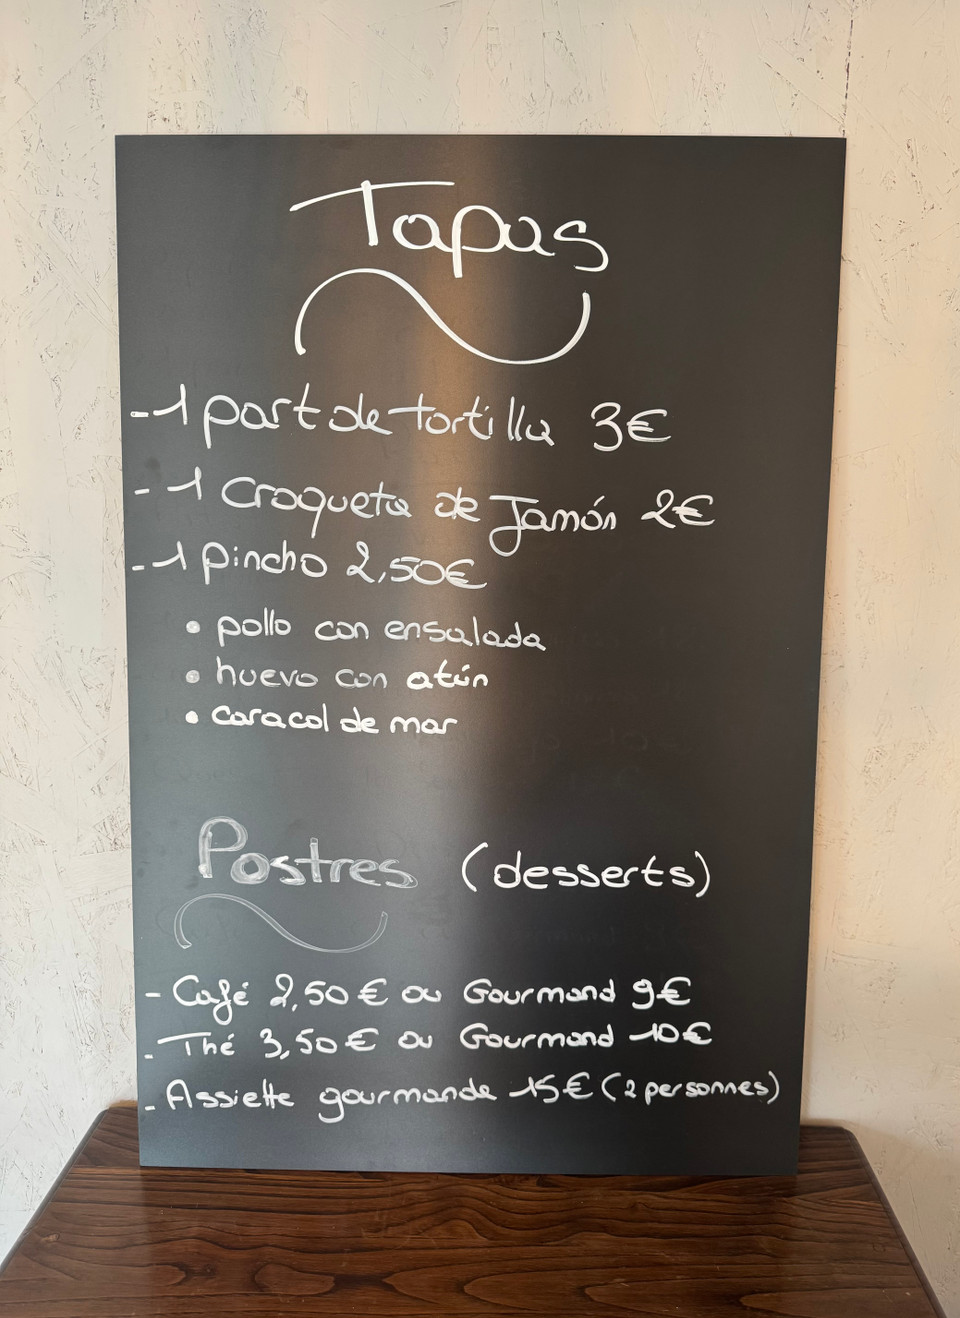 Tapas
- 1 part de tortilla 3€
- 1 croqueta de Jamón 2€
- 1 pincho 2,50€
• pollo con ensalada
• huevo con atún
• caracol de mar
Postres (desserts)
- Café 2,50€ ou Gourmand 9€
- Thé 3,50€ ou Gourmand 10€
- Assiette gourmande 15€ (2 personnes)